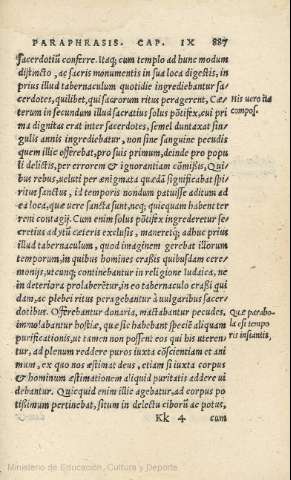 PARAPHRASIS. CAP. IX 887
sacerdotiũ conferre. Itaq; cum templo ad hunc modum
distincto, ac sacris monumentis in sua loca digestis, in
prius illud tabernaculum quotidie ingrediebantur sa
cerdotes, quilibet, qui sacrorum ritus peragerent, Cæ
terum in secundum illud sacratius solus põtifex, cui pri
ma dignitas erat inter sacerdotes, semel duntaxat sin
gulis annis ingrediebatur, uon sine sanguine pecudis
quem illic offerebat, pro suis primum, deinde pro popu
li delictis, per errorem & ignorantiam cõmissis, Qui
bus rebus, ueluti per ænigmata quædã significabat spi
ritus sanctus, id temporis nondum patuisse aditum ad
ea loca, quæ uere sancta sunt, neq; quicquam habent ter
reni contagij. Cum enim solus põtifex ingrederetur se
cretius adytũ cæteris exclusis, maneretq; adhuc prius
illud tabernaculum, quod imaginem gerebat illorum
temporum, in quibus homines crassis quibusdam cere
monijs, utcunq; continebantur in religione Iudaica, ne
in deteriora prolaberẽtur, in eo tabernaculo crassi qui
dam, ac plebei ritus peragebantur à uulgaribus sacer
dotibus. Offerebantur donaria, mactabantur pecudes,
immolabantur hostiæ, quæ sic habebant speciẽ aliquam
purificationis, ut tamen non possent eos qui his uteren-
tur, ad plenum reddere puros iuxta cõscientiam et ani
mum, ex quo nos æstimat deus, etiam si iuxta corpus
& hominum æstimationem aliquid puritatis addere ui
debantur. Quicquid enim illic agebatur, ad corpus po
tissimum pertinebat, situm in delectu ciborũ ac potus,
Kk 4 cum
His uero ita
compos.
Quæ parabo
la est tempo
ris instantis,
Ministerio de Educación, Cultura y Deporte